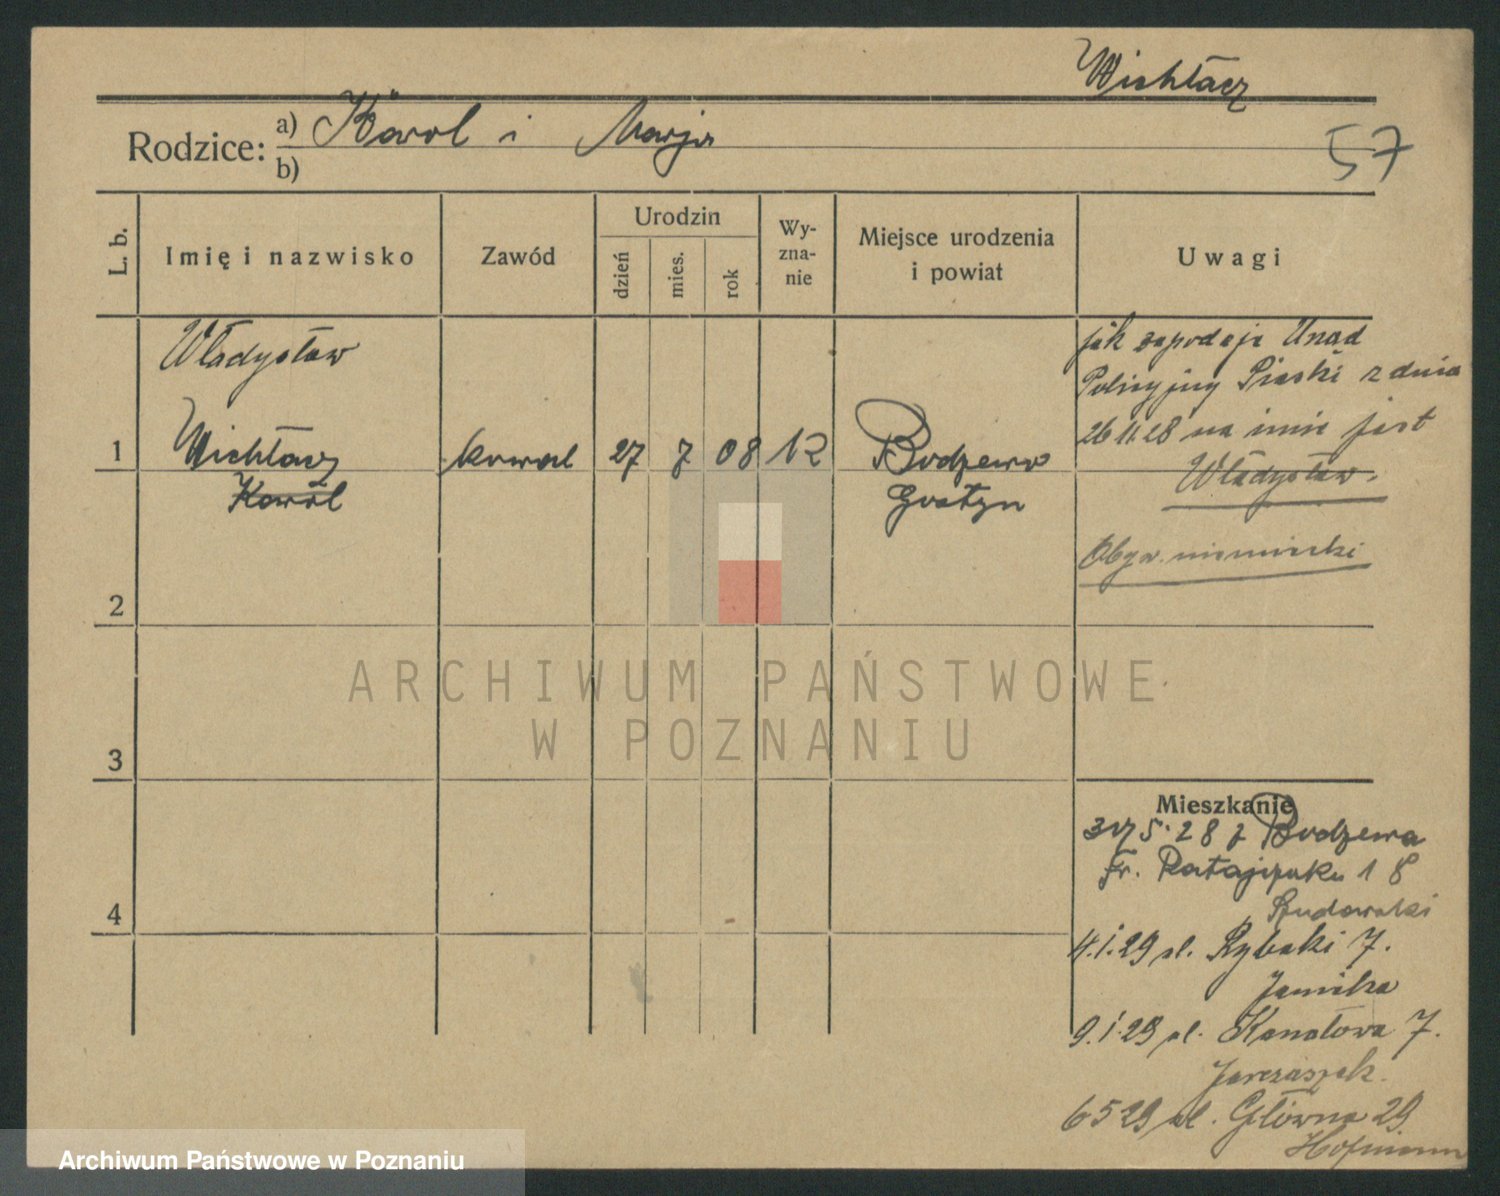 Wichłacz
Rodzice: a) Karol i Marja
b)
57
L. b.
Imię i nazwisko
Zawód
Urodzin
dzień
mies.
rok
Wy-
zna-
nie
Miejsce urodzenia
i powiat
Uwagi
Władysław
1 Wichłacz kowal 27 7 08 Budzewo
Karol Gostyn
jak zapodaje Urząd
Policyjny Piaski z dnia
26 11 28 na imie jest
Władysław.
Obyw. niemiecki
2
3
4
Mieszkanie
5. 28 z Bodzewa
Fr. Ratajczaka 18
4.1.29 ul. Rybaki 7.
9.1.29 ul. Kanałowa 7.
6 5 29 ul. Główna 29
Hofmann
ARCHIWUM PAŃSTWOWE
W POZNANIU
Archiwum Państwowe w Poznaniu